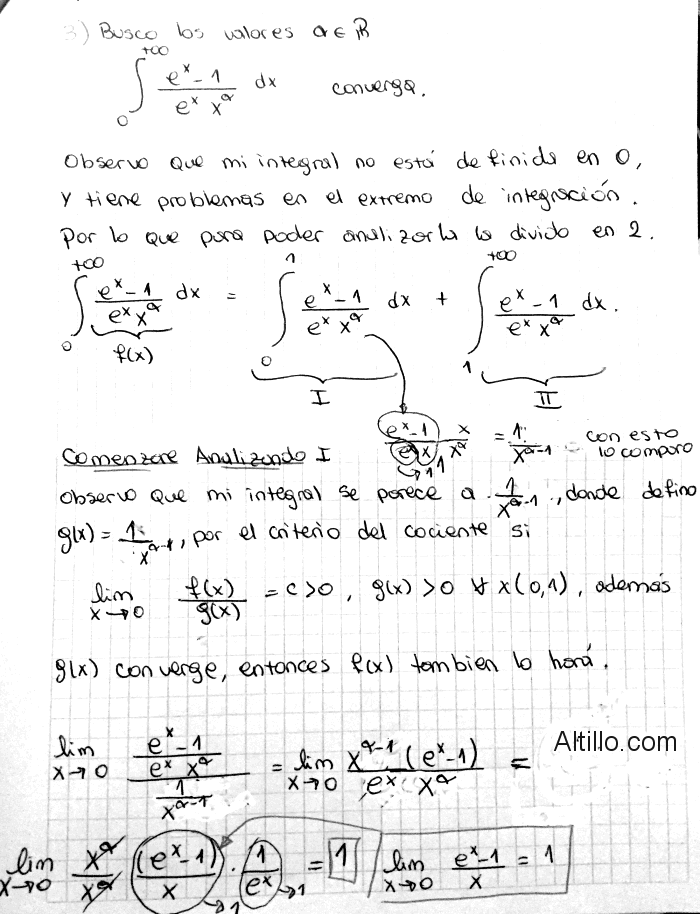 3) Busco los valores α ∈ ℝ
∫₀^{+∞} (e^x - 1)/(e^x x^α) dx converga.
Observo que mi integral no está definida en 0,
y tiene problemas en el extremo de integración.
Por lo que para poder analizarla la divido en 2.
∫₀^{+∞} (e^x - 1)/(e^x x^α) dx = ∫₀^1 (e^x - 1)/(e^x x^α) dx + ∫₁^{+∞} (e^x - 1)/(e^x x^α) dx.
f(x) I II
(e^x - 1)/(e^x x) x/x^α = 1/x^{α-1} con esto
→1 1 lo comparo
Comenzare Analizando I
Observo que mi integral se parece a 1/x^{α-1}, donde defino
g(x) = 1/x^{α-1}, por el criterio del cociente si
lim x→0 f(x)/g(x) = c > 0, g(x) > 0 ∀ x(0,1), además
g(x) converge, entonces f(x) tambien lo hará.
lim x→0 ((e^x - 1)/(e^x x^α))/(1/x^{α-1}) = lim x→0 (x^{α-1} (e^x - 1))/(e^x x^α) =
Altillo.com
lim x→0 x^α/x^α (e^x - 1)/x →1 · 1/e^x →1 = 1 lim x→0 (e^x - 1)/x = 1